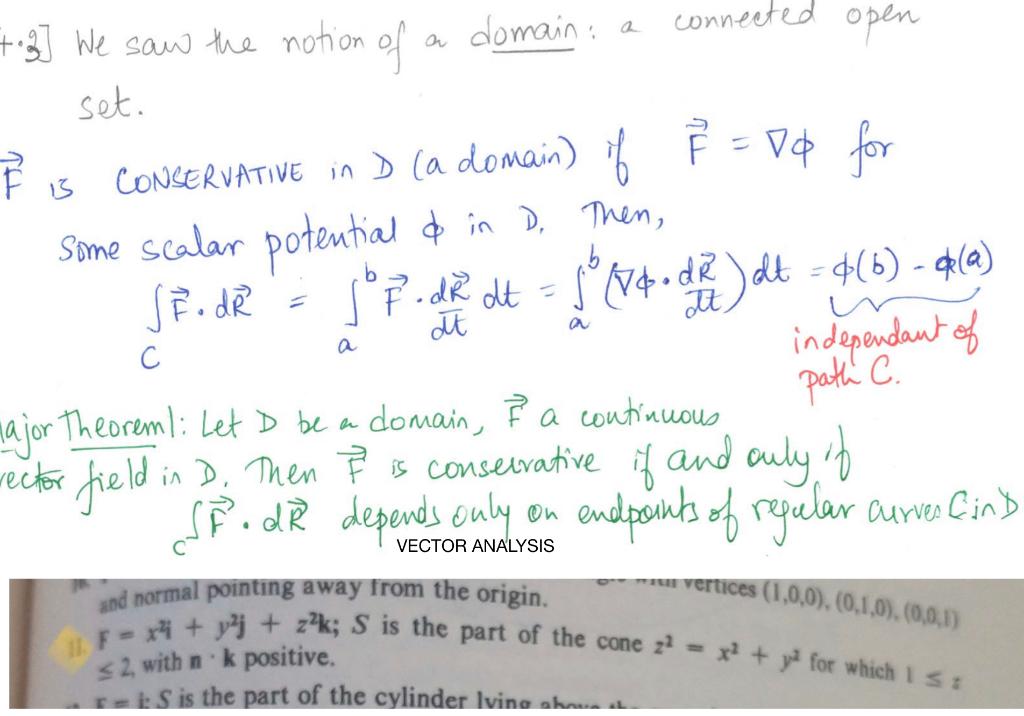 4.3] We saw the notion of a domain: a connected open
set.
F⃗ is CONSERVATIVE in D (a domain) if F⃗ = ∇ϕ for
some scalar potential ϕ in D. Then,
∫_C F⃗ · dR⃗ = ∫_a^b F⃗ · dR⃗/dt dt = ∫_a^b (∇ϕ · dR⃗/dt) dt = ϕ(b) - ϕ(a)
independant of
path C.
ajor Theorem1: Let D be a domain, F⃗ a continuous
vector field in D. Then F⃗ is conservative if and only if
∫_C F⃗ · dR⃗ depends only on endpoints of regular curves C in D
VECTOR ANALYSIS
with vertices (1,0,0), (0,1,0), (0,0,1)
and normal pointing away from the origin.
11. F = x²i + y²j + z²k; S is the part of the cone z² = x² + y² for which 1 ≤ z
≤ 2, with n · k positive.
F = i; S is the part of the cylinder lying above the